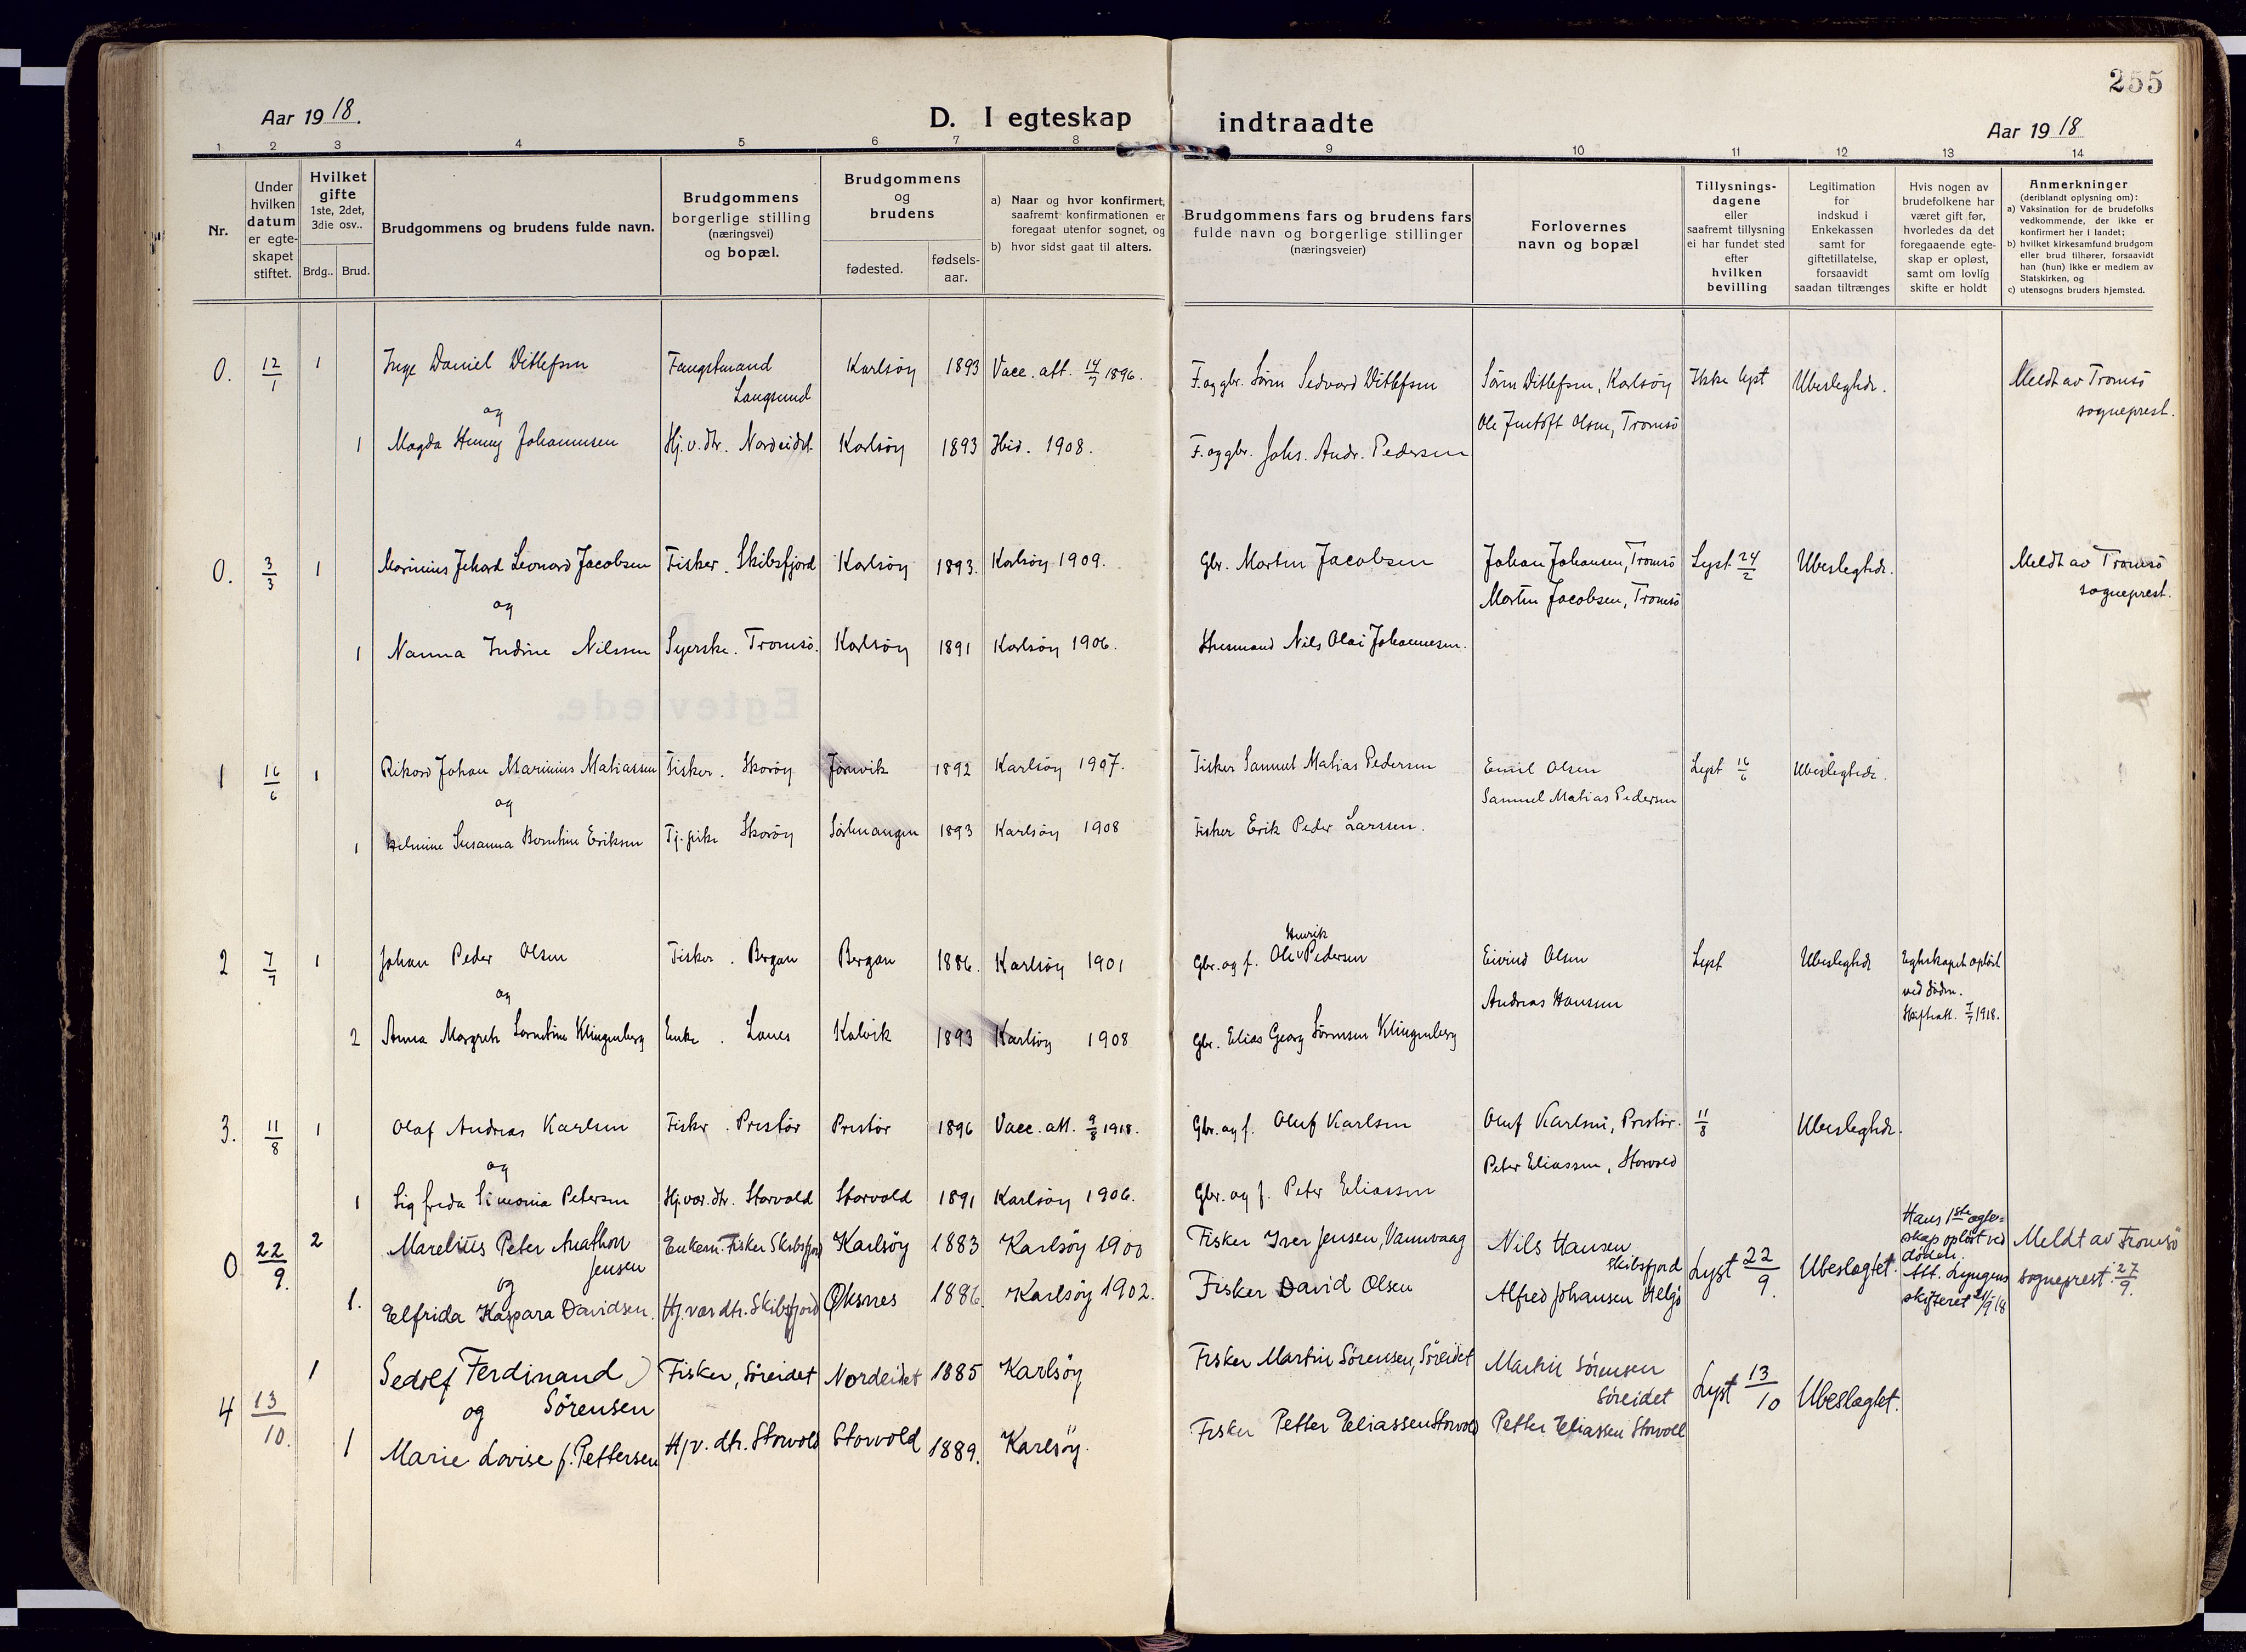 255
Aar 1918.
D. I egteskap indtraadte
Aar 1918
1 2 3 4 5 6 7 8 9 10 11 12 13 14
Nr.
Under hvilken datum er egte-skapet stiftet.
Hvilket gifte 1ste, 2det, 3die osv..
Brdg.. Brud.
Brudgommens og brudens fulde navn.
Brudgommens borgerlige stilling (næringsvei) og bopæl.
Brudgommens og brudens
fødested. fødsels-aar.
a) Naar og hvor konfirmert, saafremt konfirmationen er foregaat utenfor sognet, og
b) hvor sidst gaat til alters.
Brudgommens fars og brudens fars fulde navn og borgerlige stillinger (næringsveier)
Forlovernes navn og bopæl
Tillysnings-dagene eller saafremt tillysning ei har fundet sted efter hvilken bevilling
Legitimation for indskud i Enkekassen samt for giftetillatelse, forsaavidt saadan tiltrænges
Hvis nogen av brudefolkene har været gift før, hvorledes da det foregaaende egte-skap er opløst, samt om lovlig skifte er holdt
Anmerkninger (deriblandt oplysning om):
a) Vaksination for de brudefolks vedkommende, der ikke er konfirmert her i landet;
b) hvilket kirkesamfund brudgom eller brud tilhører, forsaavidt han (hun) ikke er medlem av Statskirken, og
c) utensogns bruders hjemsted.
0. 12/1 1 Inge Daniel Ditlefsen Fangstmand Langsund Karlsöy 1893 Vacc. att. 14/7 1896. F. og gbr. Sörin Sedvard Ditlefsen Sörin Ditlefsen, Karlsöy Ikke lyst Ubeslegtede. Meldt av Tromsö sogneprest.
og Ole Olsen, Tromsö
1 Magda Henny Johannesen Hj.v.dtr. Nordeidet Karlsöy 1893 Ibid. 1908. F. og gbr. Johs. Andr. Pedersen
0. 3/3 1 Marinius Jehard Leonard Jacobsen Fisker. Skibsfjord Karlsöy 1893. Karlsöy 1909. Gbr. Martin Jacobsen Johan Johansen, Tromsö Lyst 24/2 Ubeslegtede. Meldt av Tromsö sogneprest.
og Martin Jacobsen, Tromsö
1 Nanna Indine Nilssen Syerske. Tromsö. Karlsöy 1891 Karlsöy 1906. Husmand Nils Olai Johannesen.
1 16/6 1 Rikard Johan Marinius Matiassen Fisker. Skoröy Jörnvik 1892 Karlsöy 1907. Fisker Samuel Matias Pedersen Emil Olsen Lyst 16/6 Ubeslegtede.
og Samuel Matias Pedersen
1 Helmine Susanna Berntine Eriksen Tj.pike Skoröy Sörlenangen 1893 Karlsöy 1908 Fisker Erik Peder Larssen.
2 7/7 1 Johan Peder Olsen Fisker. Bergan Bergan 1886. Karlsöy 1901 Gbr. og f. Ole Henrik Pedersen Eivind Olsen Lyst Ubeslegtede Egteskapet oplöst ved döden. Skifteatt. 7/7 1918.
og Andreas Hansen
2 Anna Margrete Lorentine Klingenberg Enke. Lanes Kalvik 1893 Karlsöy 1908 Gbr. Elias Georg Sörensen Klingenberg
3. 11/8 1 Olaf Andreas Karlsen Fisker. Prestör Prestör 1896 Vacc. att. 9/8 1918. Gbr. og f. Oluf Karlsen Oluf Karlsen, Prestör. 11/8 Ubeslegtede.
og Peter Eliassen, Storvold
1 Sigfreda Simonia Petersen Hj.vær.dtr. Storvold Storvold 1891 Karlsöy 1906. Gbr. og f. Peter Eliassen
0 22/9. 2 Marelius Peter Anathon Jensen Enkem. Fisker Skibsfjord Karlsöy 1883 Karlsöy 1900 Fisker Iver Jensen, Vannvaag Nils Hansen Skibsfjord Lyst 22/9. Ubeslægtet. Hans 1ste ægte=skap oplöst ved döden. Att. Lyngens skifteret 21/9 18 Meldt av Tromsö sogneprest. 27/9.
og
1. Elfrida Kaspara Davidsen. Hj.vær dtr. Skibsfjord Øksnes 1886. Karlsöy 1902. Fisker David Olsen Alfred Johansen Helgö
4 13/10. 1 Sedolf Ferdinand Sörensen Fisker, Söreidet Nordeidet 1885 Karlsöy Fisker Martin Sörensen, Söreidet Martin Sörensen Söreidet Lyst 13/10 Ubeslægtet.
og
1 Marie Lovise f. Pettersen Hj v. dtr. Storvold Storvold 1889. Karlsöy. Fisker Petter Eliassen Storvold Petter Eliassen Storvoll